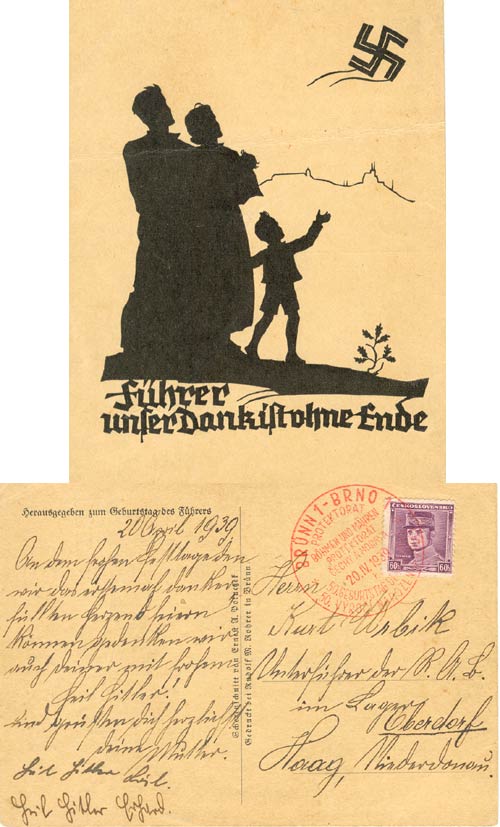 Führer
unser Dank ist ohne Ende
Herausgegeben zum Geburtstag des Führers
20 April 1939
An dem frohen Festtage den
wir das erstemal dankerfüllten
Herzens feiern
können gedenken wir
auch deiner mit frohem
Heil Hitler!
und grüßen dich herzlichst
deine Mutter.
Heil Hitler
Heil Hitler Erhard.
Scherenschnitt von Ernst A.
Gedruckt bei Rudolf M. Rohrer in Brünn
BRÜNN 1 - BRNO 1
PROTEKTORAT
BÖHMEN UND MÄHREN
PROTEKTORÁT
ČECHY A MORAVA
20.IV.1939
ČESKOSLOVENSKO
60h 60h
Herrn
Kurt Urbik
Unterführer der R.A.B.
im Lager
Oberdorf
Haag, Niederdonau.